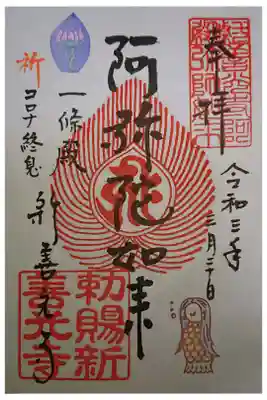 奉拝
令和三年
阿弥陀如来
一條殿
新善光寺
祈
コロナ終息
勅賜新
善光寺